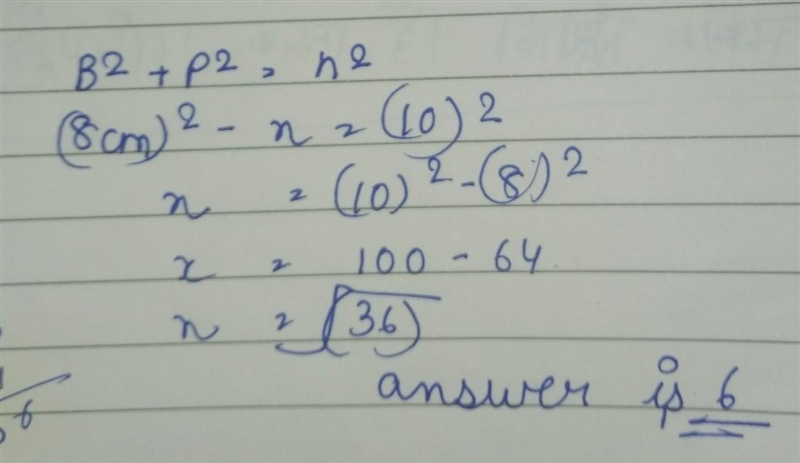 B2 + P2 = h2
(8cm)2 - x = (10)2
x = (10)2 - (8)2
x = 100 - 64
x = √36
answer is 6
6